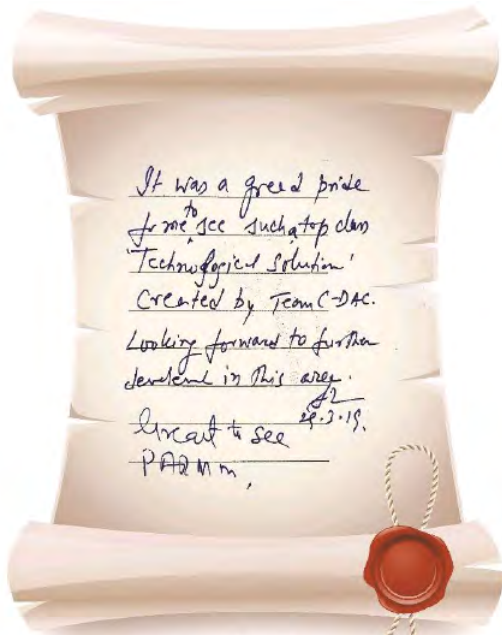 It was a great pride
for me to see such a top class
'Technological Solution'
Created by Team C-DAC.
Looking forward to further
in this area.
29.3.19.
Great to see
PARAM